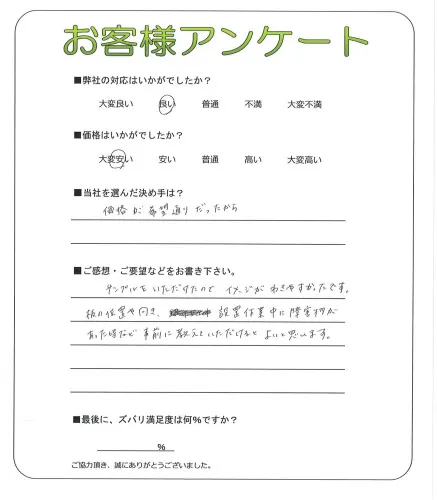 お客様アンケート
■弊社の対応はいかがでしたか？
大変良い 良い 普通 不満 大変不満
■価格はいかがでしたか？
大変安い 安い 普通 高い 大変高い
■当社を選んだ決め手は？
価格が希望通りだったから
■ご感想・ご要望などをお書き下さい。
サンプルをいただけたので イメージがわきやすかったです。
板の位置や向き、 設置作業中に障害物が
あった時など事前に教えていただけると よいと思います。
■最後に、ズバリ満足度は何％ですか？
％
ご協力頂き、誠にありがとうございました。